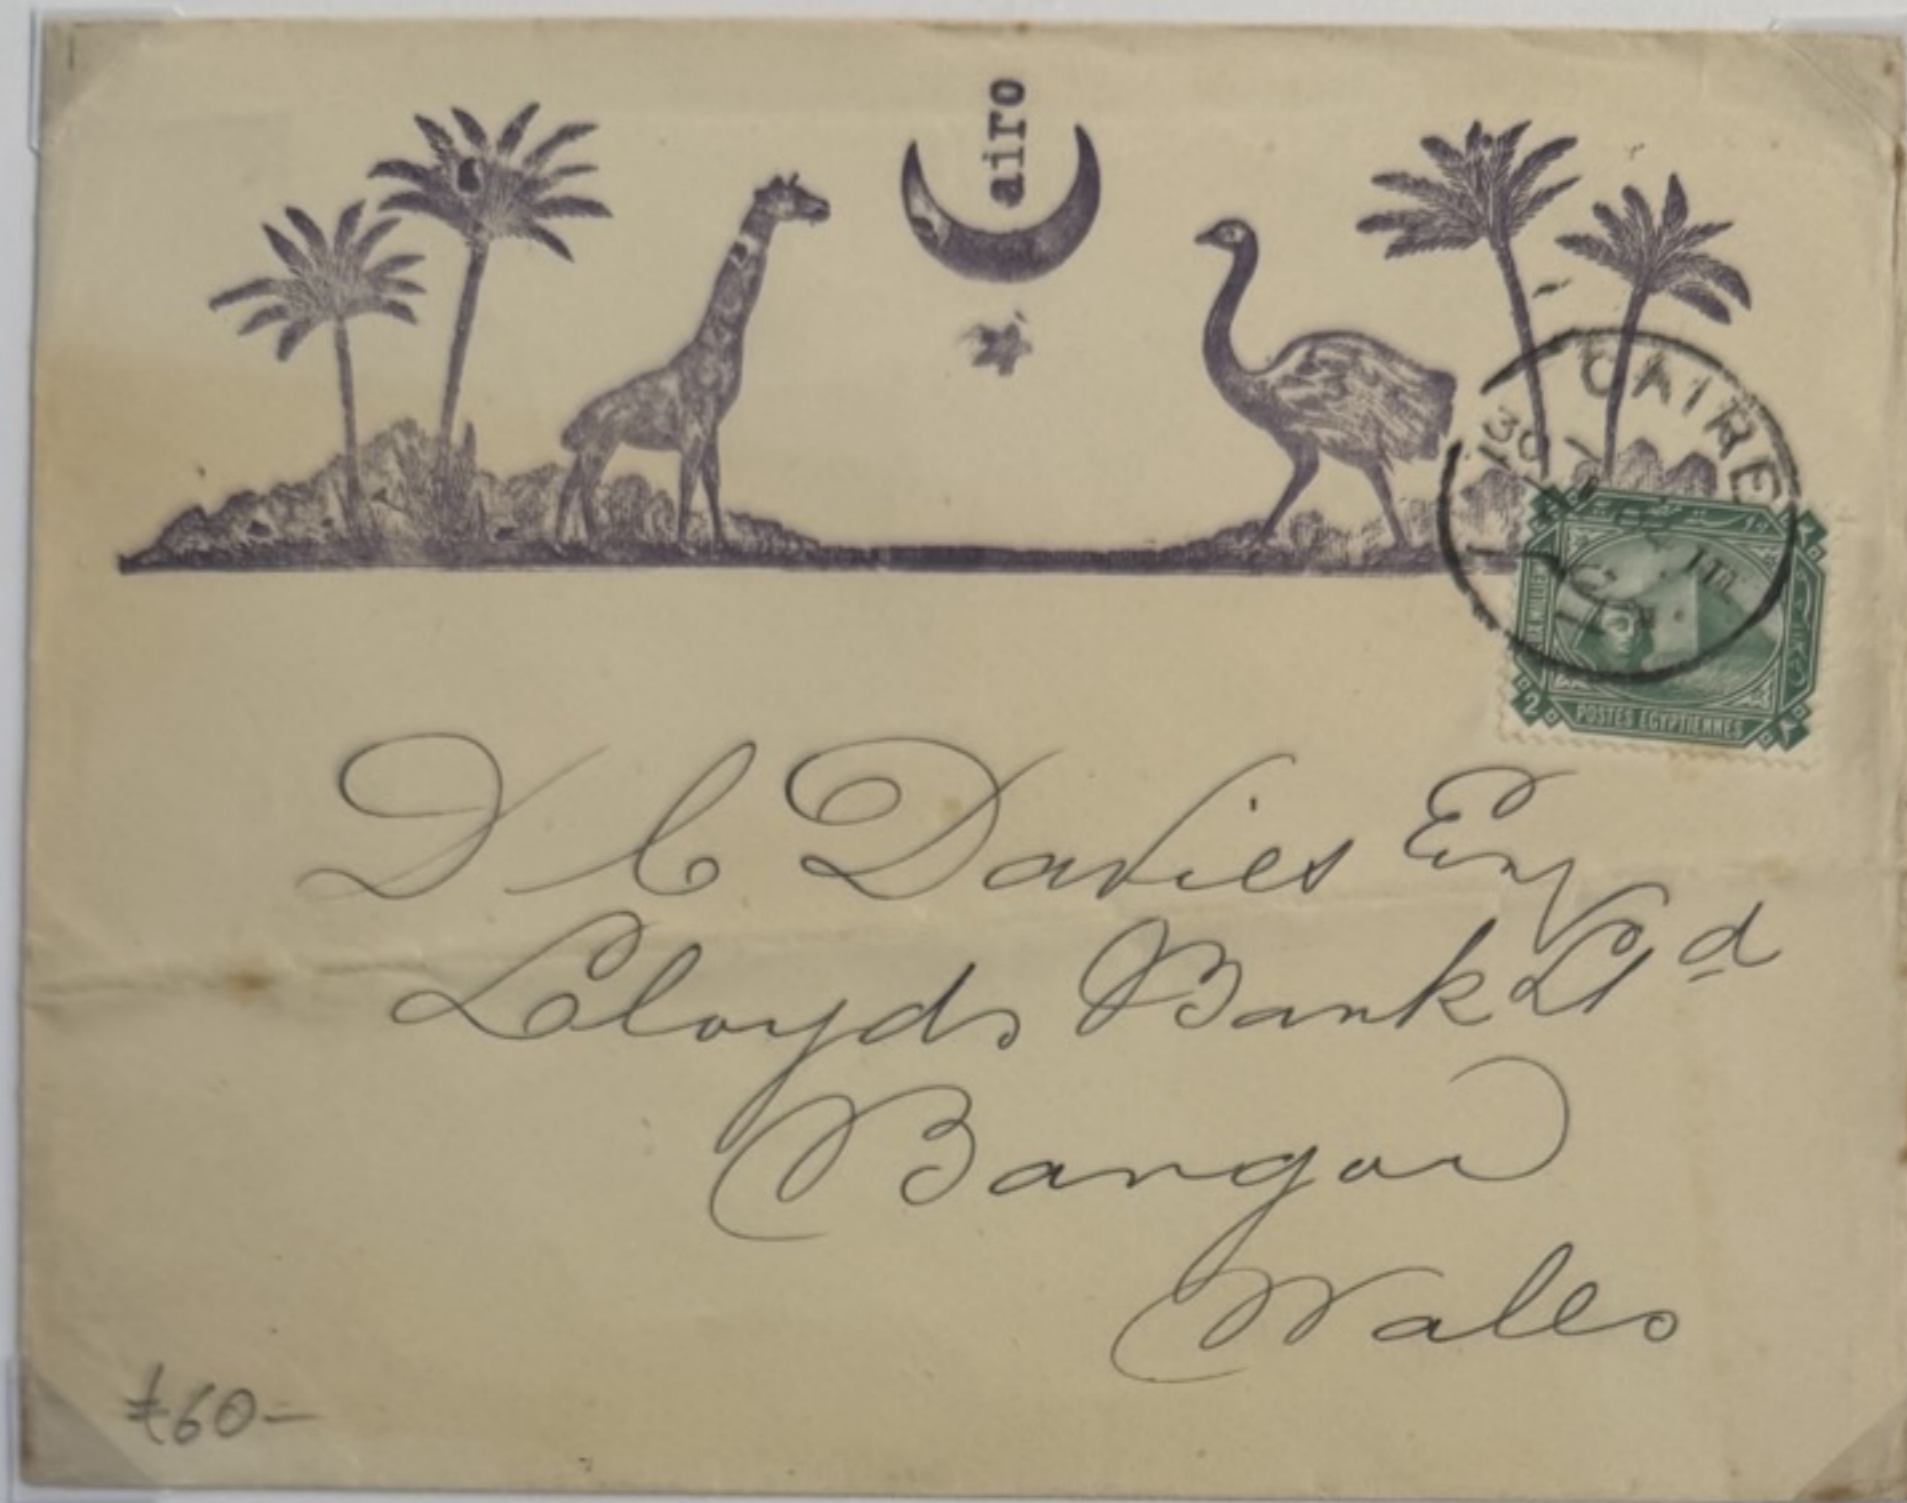 airo
CAIRE
30
POSTES EGYPTIENNES
2
D C Davies Esq
Lloyds Bank Ltd
Bangor
Wales
£60-